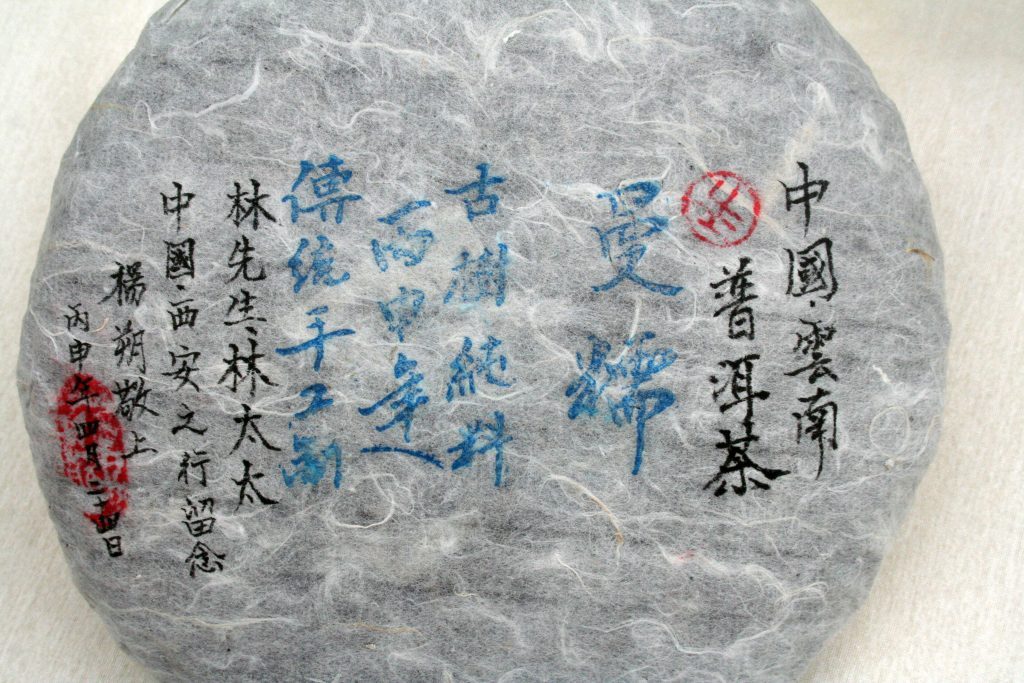 中國·雲南
普洱茶
曼糯
古樹純料
丙申年
傳統手工制
林先生·林太太
中國·西安之行留念
楊朔敬上
丙申年四月二十四日